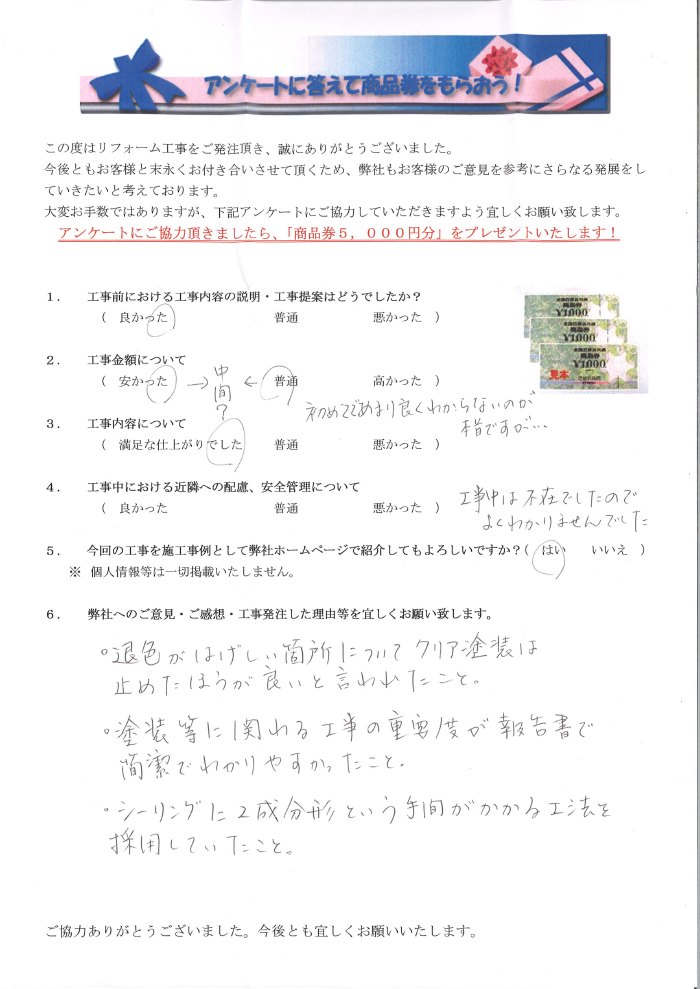 アンケートに答えて商品券をもらおう！
この度はリフォーム工事をご発注頂き、誠にありがとうございました。
今後ともお客様と末永くお付き合いさせて頂くため、弊社もお客様のご意見を参考にさらなる発展をし
ていきたいと考えております。
大変お手数ではありますが、下記アンケートにご協力していただきますよう宜しくお願い致します。
アンケートにご協力頂きましたら、「商品券５，０００円分」をプレゼントいたします！
１． 工事前における工事内容の説明・工事提案はどうでしたか？
（ 良かった 普通 悪かった ）
全国百貨店共通
商品券
¥1,000
¥1,000
見本
２． 工事金額について
（ 安かった →中間？← 普通 高かった ）
初めてであまり良くわからないのが
本音ですが…
３． 工事内容について
（ 満足な仕上がりでした 普通 悪かった ）
４． 工事中における近隣への配慮、安全管理について
（ 良かった 普通 悪かった ）
工事中は不在でしたので
よくわかりませんでした
５． 今回の工事を施工事例として弊社ホームページで紹介してもよろしいですか？（ はい いいえ ）
※ 個人情報等は一切掲載いたしません。
６． 弊社へのご意見・ご感想・工事発注した理由等を宜しくお願い致します。
・退色がはげしい箇所についてクリア塗装は
止めたほうが良いと言われたこと。
・塗装等に関わる工事の重要度が報告書で
簡潔でわかりやすかったこと。
・シーリングに2成分形という手間がかかる工法を
採用していたこと。
ご協力ありがとうございました。今後とも宜しくお願いいたします。